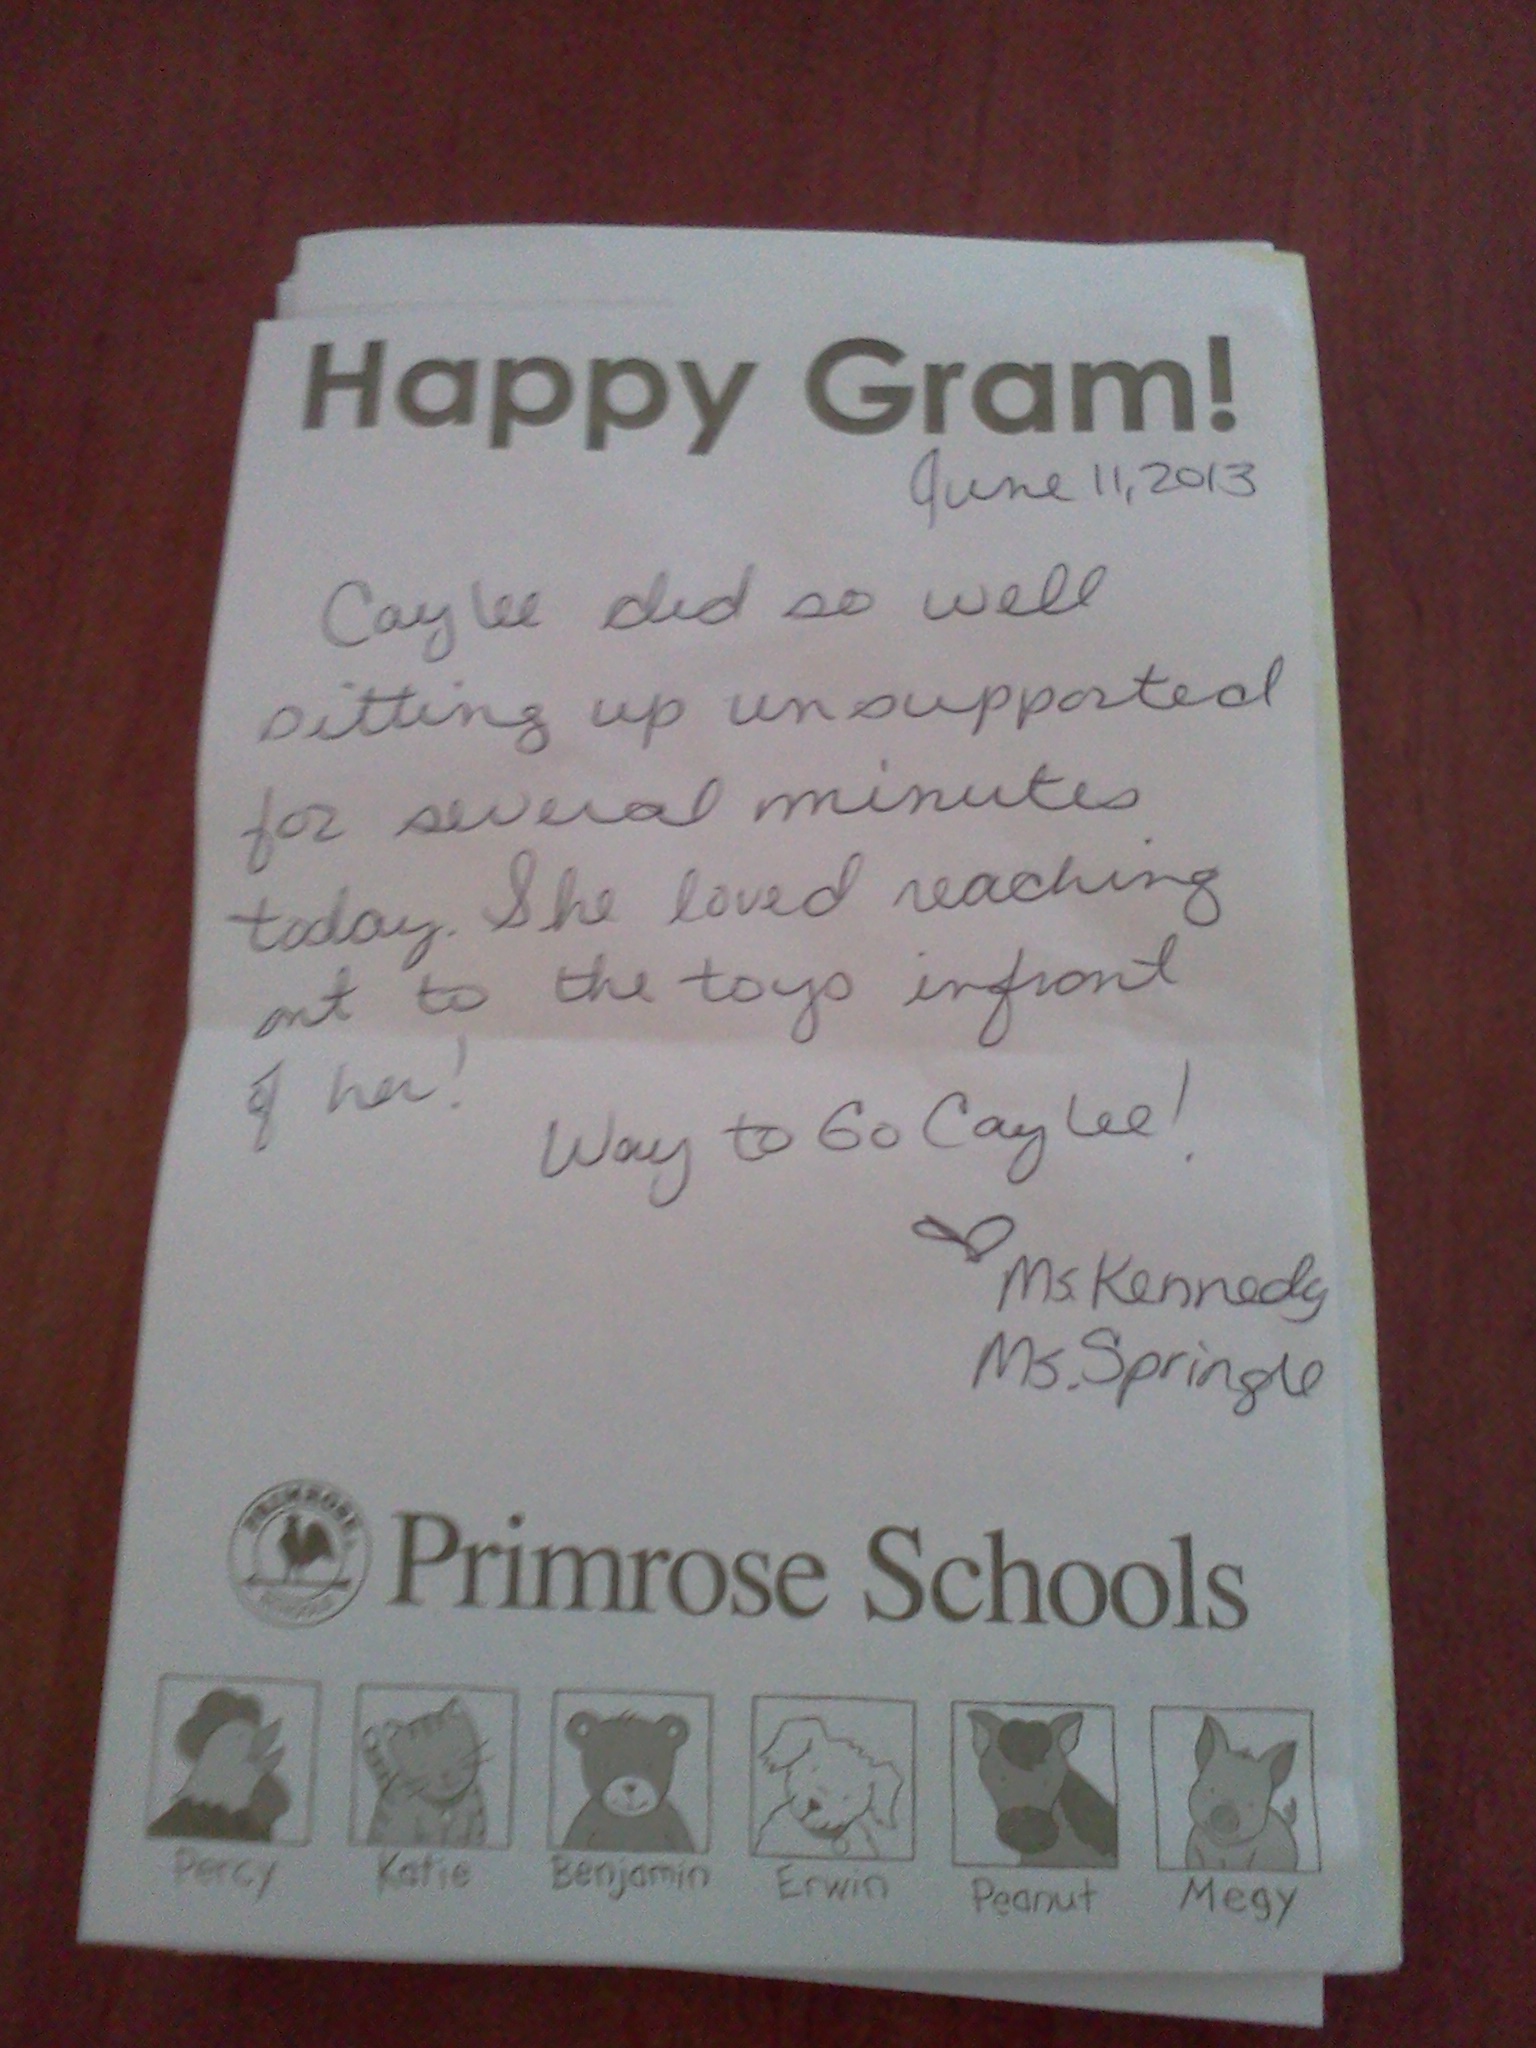 Happy Gram!
June 11, 2013
Caylee did so well
sitting up unsupported
for several minutes
today. She loved reaching
out to the toys infront
of her!
Way to Go Caylee!
Ms. Kennedy
Ms. Springle
PRIMROSE
Primrose Schools
Percy Katie Benjamin Erwin Peanut Megy